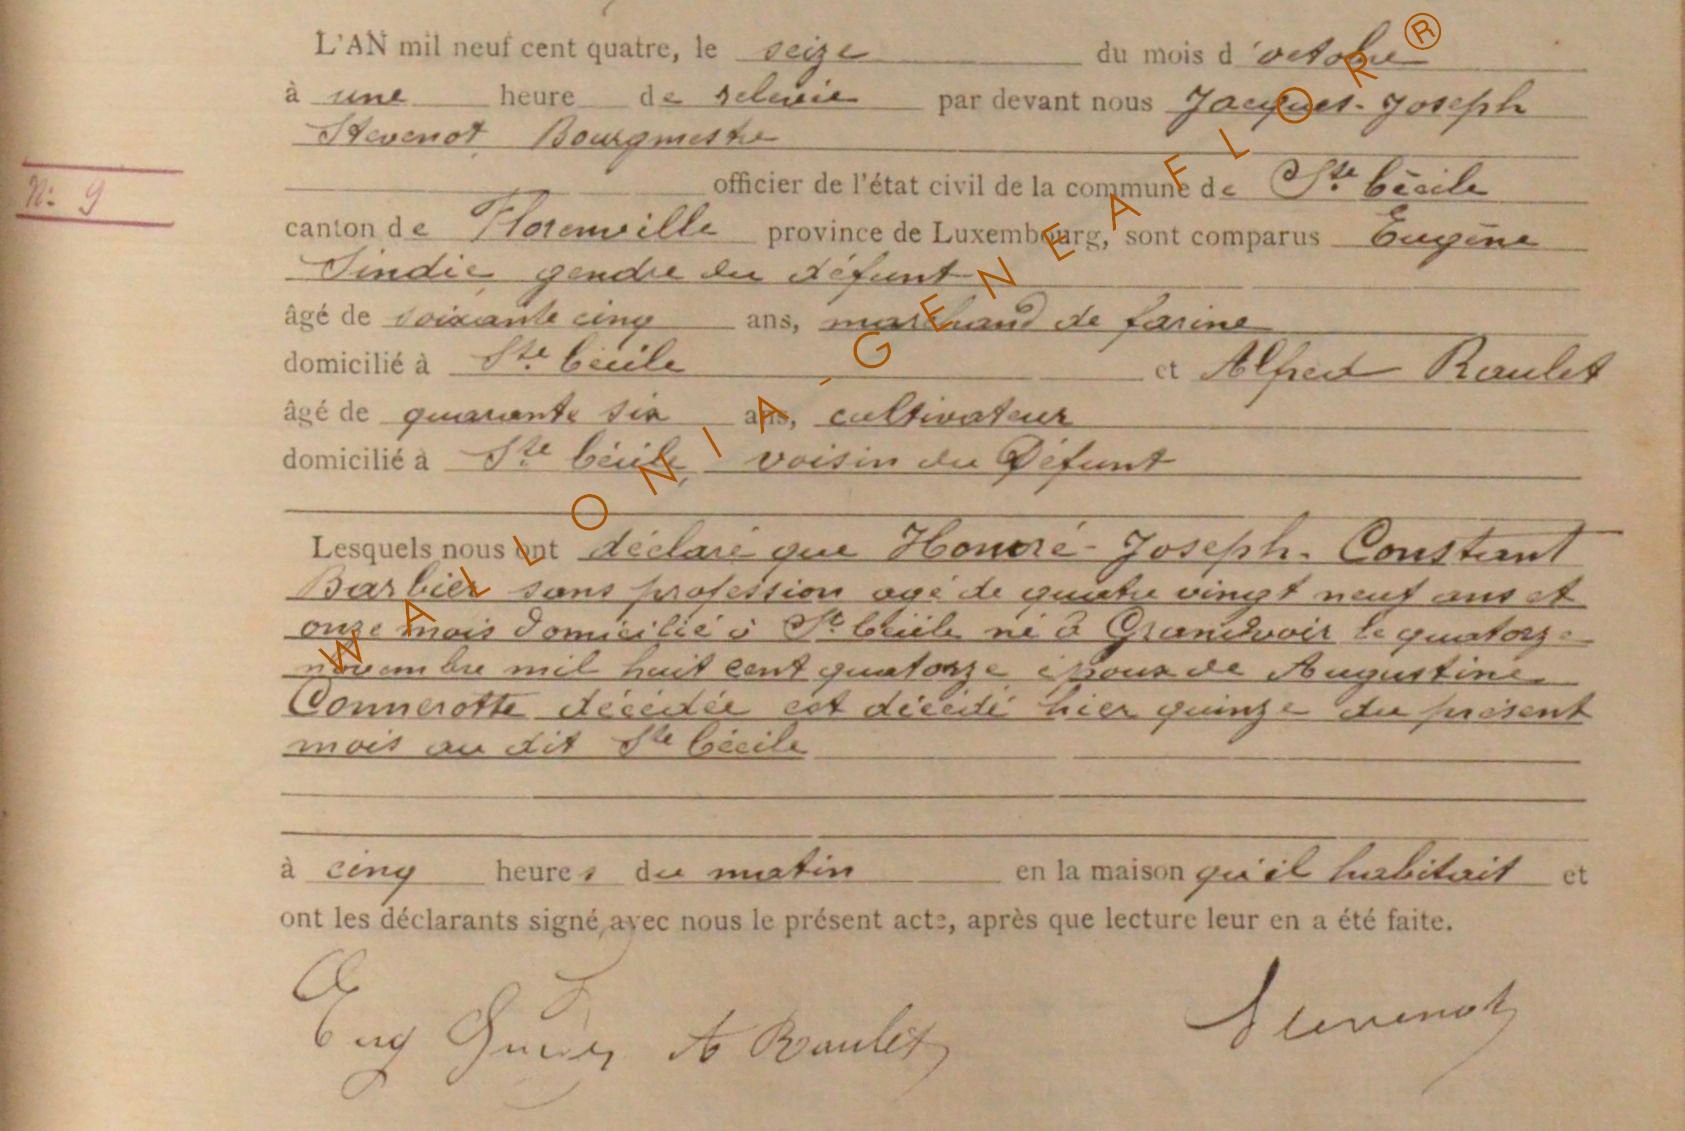 L'AN mil neuf cent quatre, le seize du mois d'octobre
à une heure de relevée par devant nous Jacques-Joseph
Stevenot, Bourgmestre
officier de l'état civil de la commune de Ste Cécile
N: 9
canton de Florenville province de Luxembourg, sont comparus Eugène
Sindic, gendre du défunt
âgé de soixante cinq ans, marchand de farine
domicilié à Ste Cécile et Alfred Raulet
âgé de quarante six ans, cultivateur
domicilié à Ste Cécile, voisin du Défunt
Lesquels nous ont déclaré que Honoré-Joseph-Constant
Barbier sans profession agé de quatre vingt neuf ans et
onze mois domicilié à Ste Cécile né à Grandvoir le quatorze
novembre mil huit cent quatorze époux de Augustine
Connerotte décédée est décédé hier quinze du présent
mois au dit Ste Cécile
à cinq heures du matin en la maison qu'il habitait et
ont les déclarants signé avec nous le présent acte, après que lecture leur en a été faite.
Eug A Raulet Stevenot
WALLONIA-GENEAFLOR®